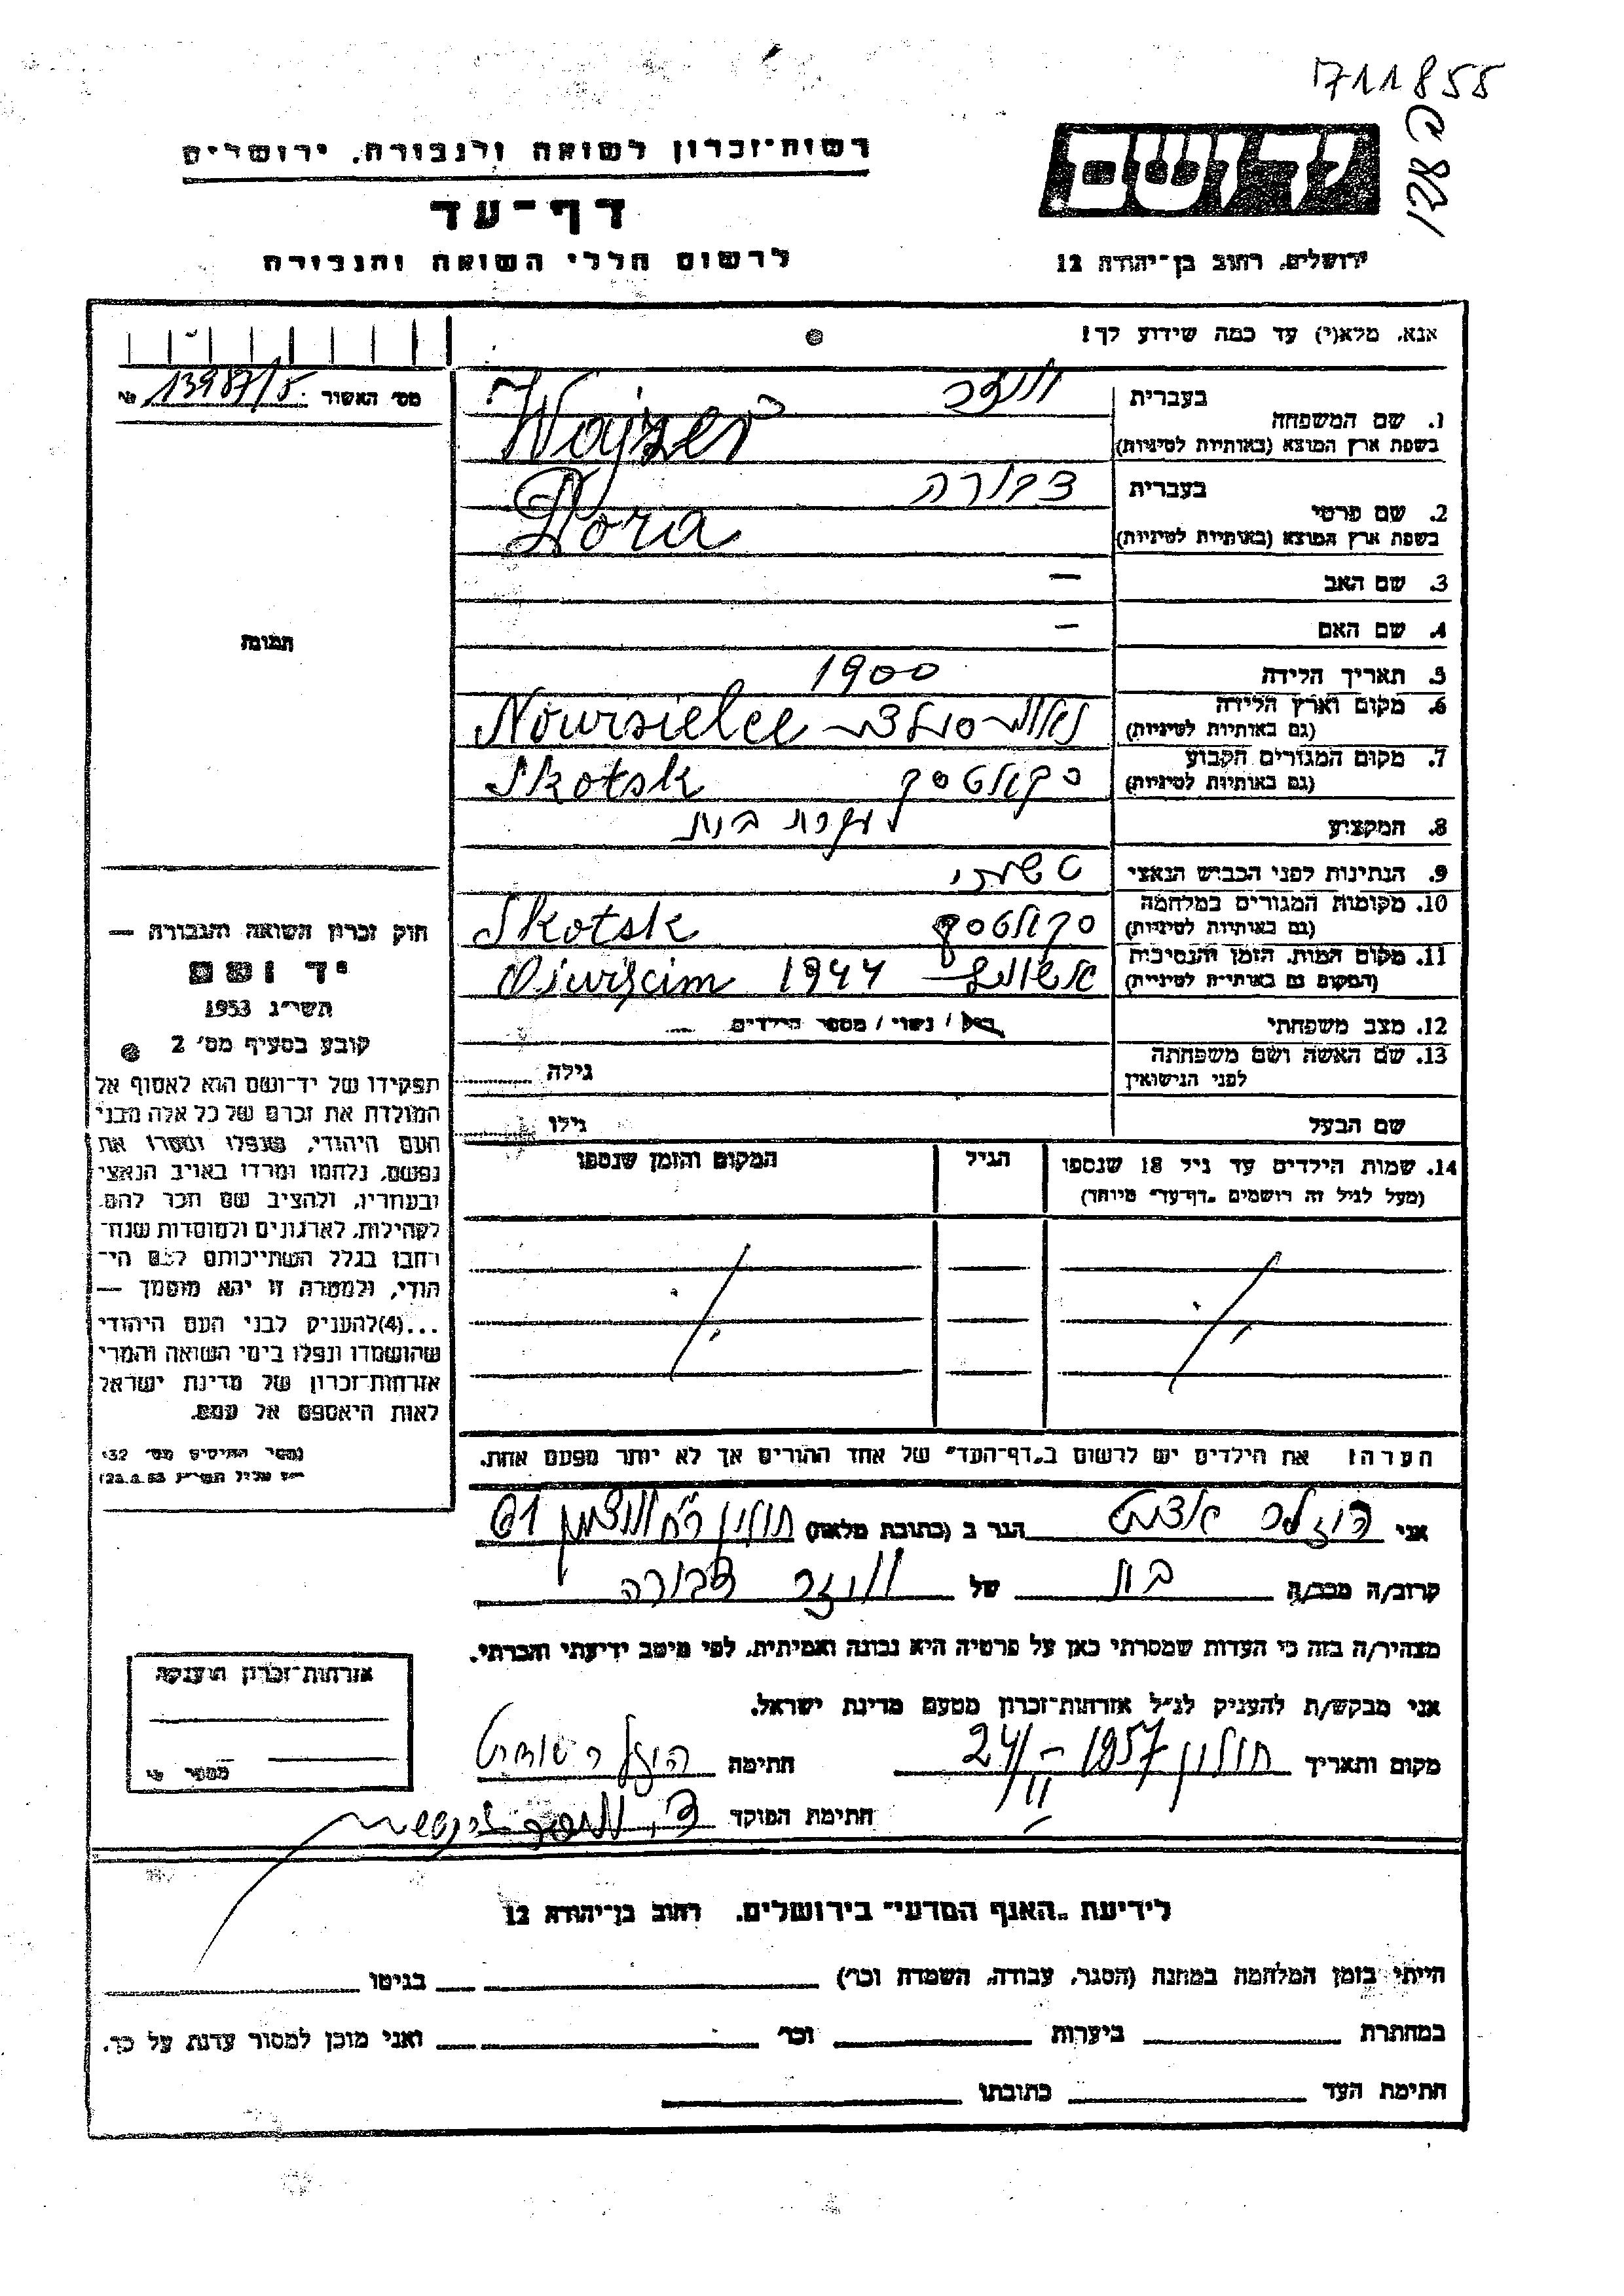 1711855
יד ושם
רשות־זכרון לשואה ולגבורה, ירושלים
דף־עד
לרשום חללי השואה והגבורה
ירושלים, רחוב בן־יהודה 12
אנא, מלא(י) עד כמה שידוע לך!
מס' האשור 13987/5. №
1. שם המשפחה
בעברית ויזר
בשפת ארץ המוצא (באותיות לטיניות) Wajzer
2. שם פרטי
בעברית דבורה
בשפת ארץ המוצא (באותיות לטיניות) Dora
3. שם האב –
4. שם האם –
תמונה
5. תאריך הלידה 1900
6. מקום וארץ הלידה
(גם באותיות לטיניות) Noursielce
7. מקום המגורים הקבוע
(גם באותיות לטיניות) סקולטסק Skotsk
8. המקצוע עקרת בית
9. הנתינות לפני הכבוש הנאצי
10. מקומות המגורים במלחמה
(גם באותיות לטיניות) סקולטסק Skotsk
11. מקום המות, הזמן והנסיבות
(המקום גם באותיות לטיניות) 1944 Osurscim
12. מצב משפחתי רוק / נשוי / מספר הילדים
13. שם האשה ושם משפחתה
לפני הנישואין גילה
שם הבעל גילו
חוק זכרון השואה והגבורה —
יד ושם
תשי"ג 1953
קובע בסעיף מס' 2
תפקידו של יד־ושם הוא לאסוף אל
המולדת את זכרם של כל אלה מבני
העם היהודי, שנפלו ומסרו את
נפשם, נלחמו ומרדו באויב הנאצי
ובעוזריו, ולהציב שם וזכר להם,
לקהילות, לארגונים ולמוסדות שנח־
רבו בגלל השתייכותם לעם הי־
הודי, ולמטרה זו יהא מוסמך —
...(4)להעניק לבני העם היהודי
שהושמדו ונפלו בימי השואה והמרי
אזרחות־זכרון של מדינת ישראל
לאות היאספם אל עמם.
14. שמות הילדים עד גיל 18 שנספו
(מעל לגיל זה רושמים "דף־עד" מיוחד)
הגיל
המקום והזמן שנספו
הערה: את הילדים יש לרשום ב"דף־העד" של אחד ההורים אך לא יותר מפעם אחת.
אני הגר ב (כתובת מלאה) חולון 61
קרוב/ה מכר/ה בת של ויזר דבורה
מצהיר/ה בזה כי העדות שמסרתי כאן על פרטיה היא נכונה ואמיתית, לפי מיטב ידיעתי והכרתי.
אני מבקש/ת להעניק לנ"ל אזרחות־זכרון מטעם מדינת ישראל.
מקום ותאריך חולון 24/II – 1957 חתימה
חתימת הפוקד
אזרחות־זכרון הוענקה
מספר
לידיעת "האגף המדעי" בירושלים, רחוב בן־יהודה 12
הייתי בזמן המלחמה במחנה (הסגר, עבודה, השמדה וכו') בגיטו
במחתרת ביערות וכו' ואני מוכן למסור עדות על כך.
חתימת העד כתובתו